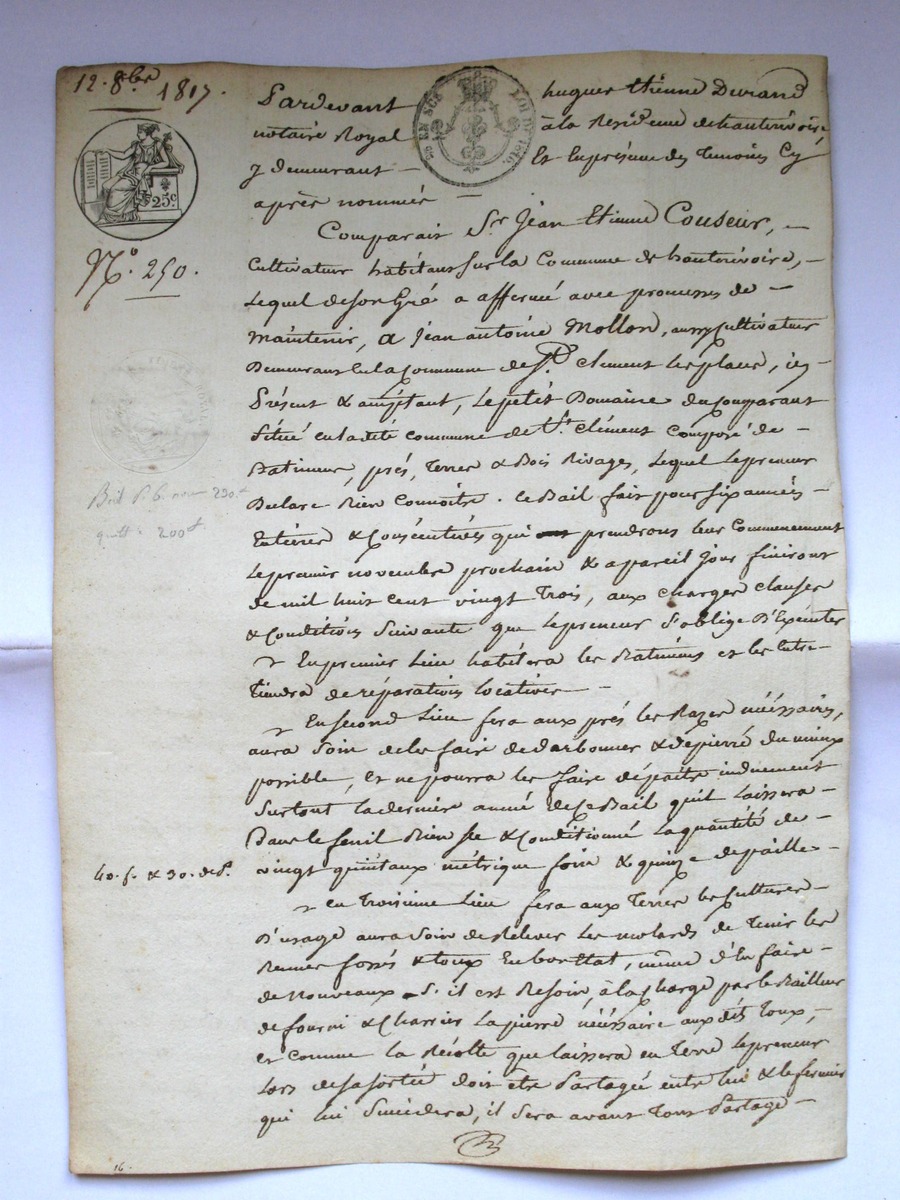 12. 8bre 1817.
Pardevant hugues Etienne Durand
notaire Royal à la Residence de hauterivoire
y demeurant – Et En présence des Temoins Cy
après nommés –
EN SUS
LOI DE 1816
25c
N° 250.
Comparait Sr Jean Etienne Couseur, –
Cultivateur habitant sur la Commune de hauterivoire, –
Lequel de son Gré a affermé avec promesses de –
Maintenir, a Jean antoine Mollon, aussy Cultivateur
Demeurant En la Commune de St Clement les places, icy
Présent & acceptant, Le petit Domaine du Comparant
Situé en ladité commune de St Clément Composé de –
Batimens, prés, Terres & Bois Rivages, Lequel Le preneur
Declare Bien Connoitre. Ce Bail fait pour six années –
Entières & Consécutives qui prendrons leur Commencement
Le premier novembre prochain & a pareil jour finiront
de mil huit cent vingt Trois, aux charges clauses
& Conditions Suivante que Le preneur S'oblige D'Exécuter
En premier Lieu habitera les Batimens et les Entre-
Tiendra de réparations locatives –
En second Lieu fera aux prés les Razes nécéssaires,
aura Soin de les faire dedarbonner & dépierré du mieux
possible, Et ne pourra les faire dépaitre induement
Surtout la derniere année de Ce Bail qu'il Laissera –
Dans le fenil Bien Sec & Conditionné La quantité de –
vingt quintaux métrique foin & quinze de paille –
40. f. & 30. de P.
En Troisième Lieu fera aux Terres les Cultures –
D'usage aura Soin de Relever Les molards de Tenir les
fossés & Toux En bon Etat, même d'En faire –
de Nouveaux S'il est Besoin, à la Charge par le Bailleur
de fourni & Charrier La pierre nécéssaire auxdits Toux, –
et Comme La Récolte que laissera en Terre Le preneur
Lors de sa sortie doit être Partagée entre lui & le fermier
qui lui Succédera, il Sera avant Tout Partage –
16.